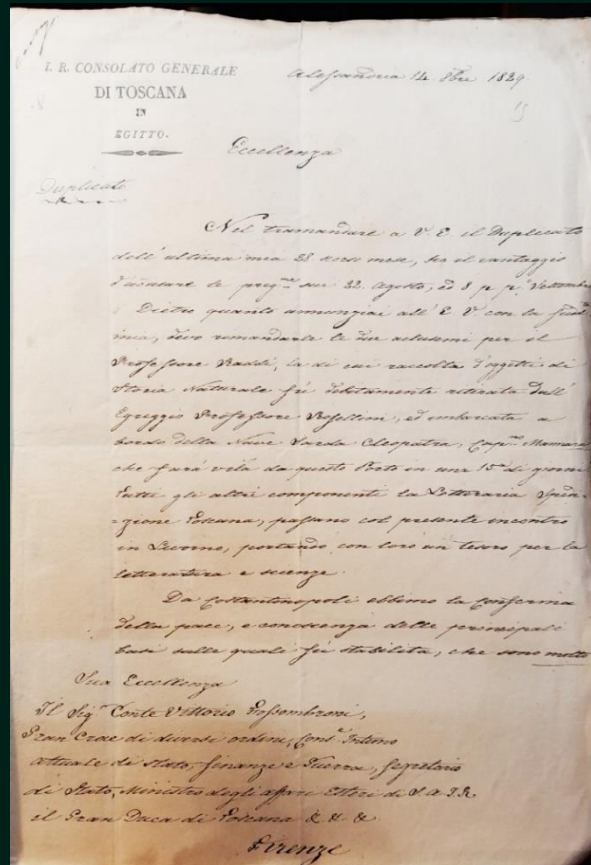 I. R. CONSOLATO GENERALE
DI TOSCANA
IN
EGITTO.
Alessandria 14 8bre 1829.
Eccellenza
Duplicato
Nel tramandare a V. E. il Duplicato
dell' ultima mia 28 scorso mese, ho il vantaggio
d'accusare le preg.me sue 22 Agosto, ed 8 p. p.o Settembre
Dietro quanto annunziai all' E. V. con la
mia, devo rimandarle le due acclusemi per il
Professore Raddi, la di cui raccolta d'oggetti di
Storia Naturale fù debitamente ritirata dall'
Egreggio Professore Rosellini, ed imbarcata a
bordo della Nave Sarda Cleopatra, Cap.no
che farà vela da questo Porto in una 15.na di giorni
Tutti gli altri componenti la Letteraria Spedi-
=zione Toscana, passano col presente incontro
in Livorno, portando con loro un tesoro per la
letteratura e scienze.
Da Costantinopoli ebbimo la conferma
della pace, e conoscenza delle principali
basi sulle quali fù stabilita, che sono molto
Sua Eccellenza
Il Sig.r Conte Vittorio Fossombroni,
Gran Croce di diversi ordini, Cons.e Intimo
attuale di Stato, finanze e Guerra, Segretario
di Stato, Ministro degli affari Esteri di S. A. I. R.
il Gran Duca di Toscana & & &
Firenze